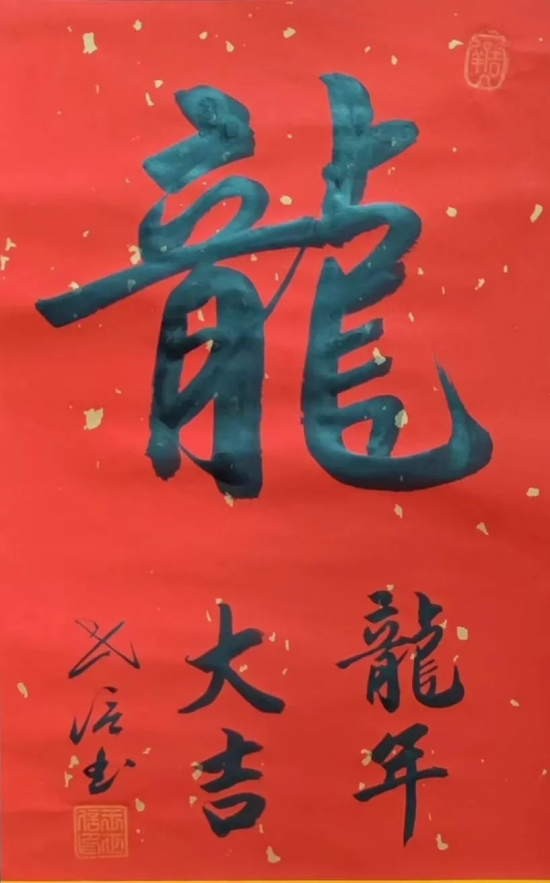 龍
龍年
大吉
信书